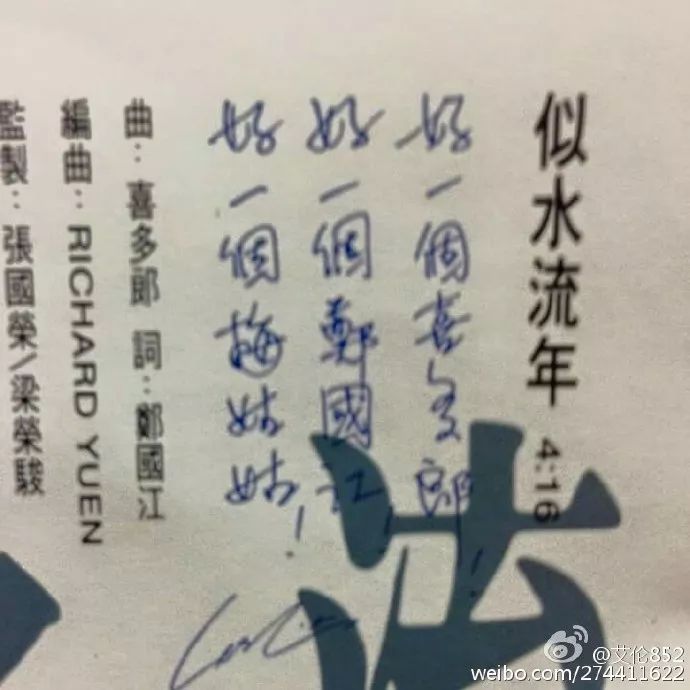 似水流年 4:16
好一個喜多郎！
好一個鄭國江！
好一個梅姑姑！
曲：喜多郎 詞：鄭國江
編曲：RICHARD YUEN
監製：張國榮/梁榮駿
@艾伦852
weibo.com/274411622